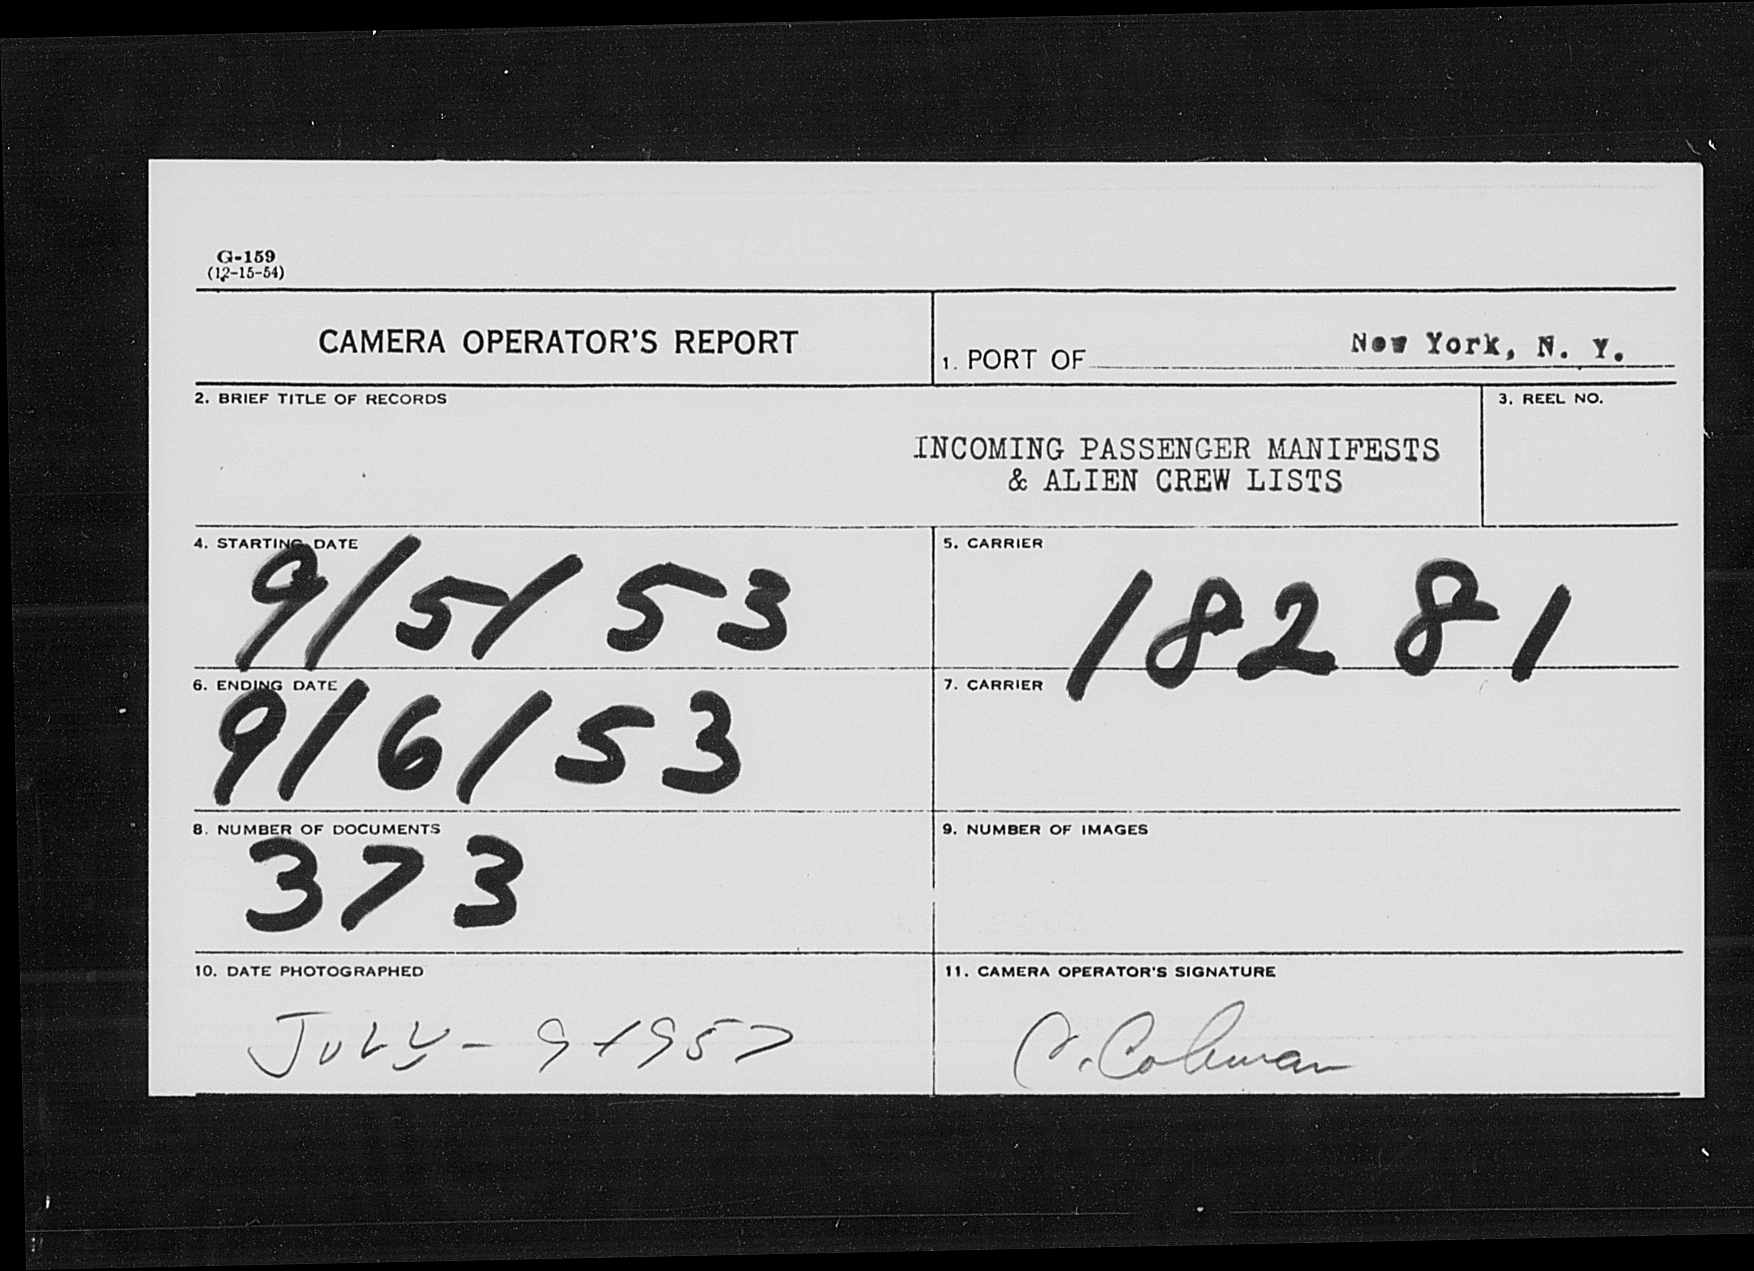 G-159
(12-15-54)
CAMERA OPERATOR'S REPORT
1. PORT OF New York, N. Y.
2. BRIEF TITLE OF RECORDS
INCOMING PASSENGER MANIFESTS
& ALIEN CREW LISTS
3. REEL NO.
4. STARTING DATE
9/5/53
5. CARRIER
18281
6. ENDING DATE
9/6/53
7. CARRIER
8. NUMBER OF DOCUMENTS
373
9. NUMBER OF IMAGES
10. DATE PHOTOGRAPHED
JULY - 9 1957
11. CAMERA OPERATOR'S SIGNATURE
Coleman